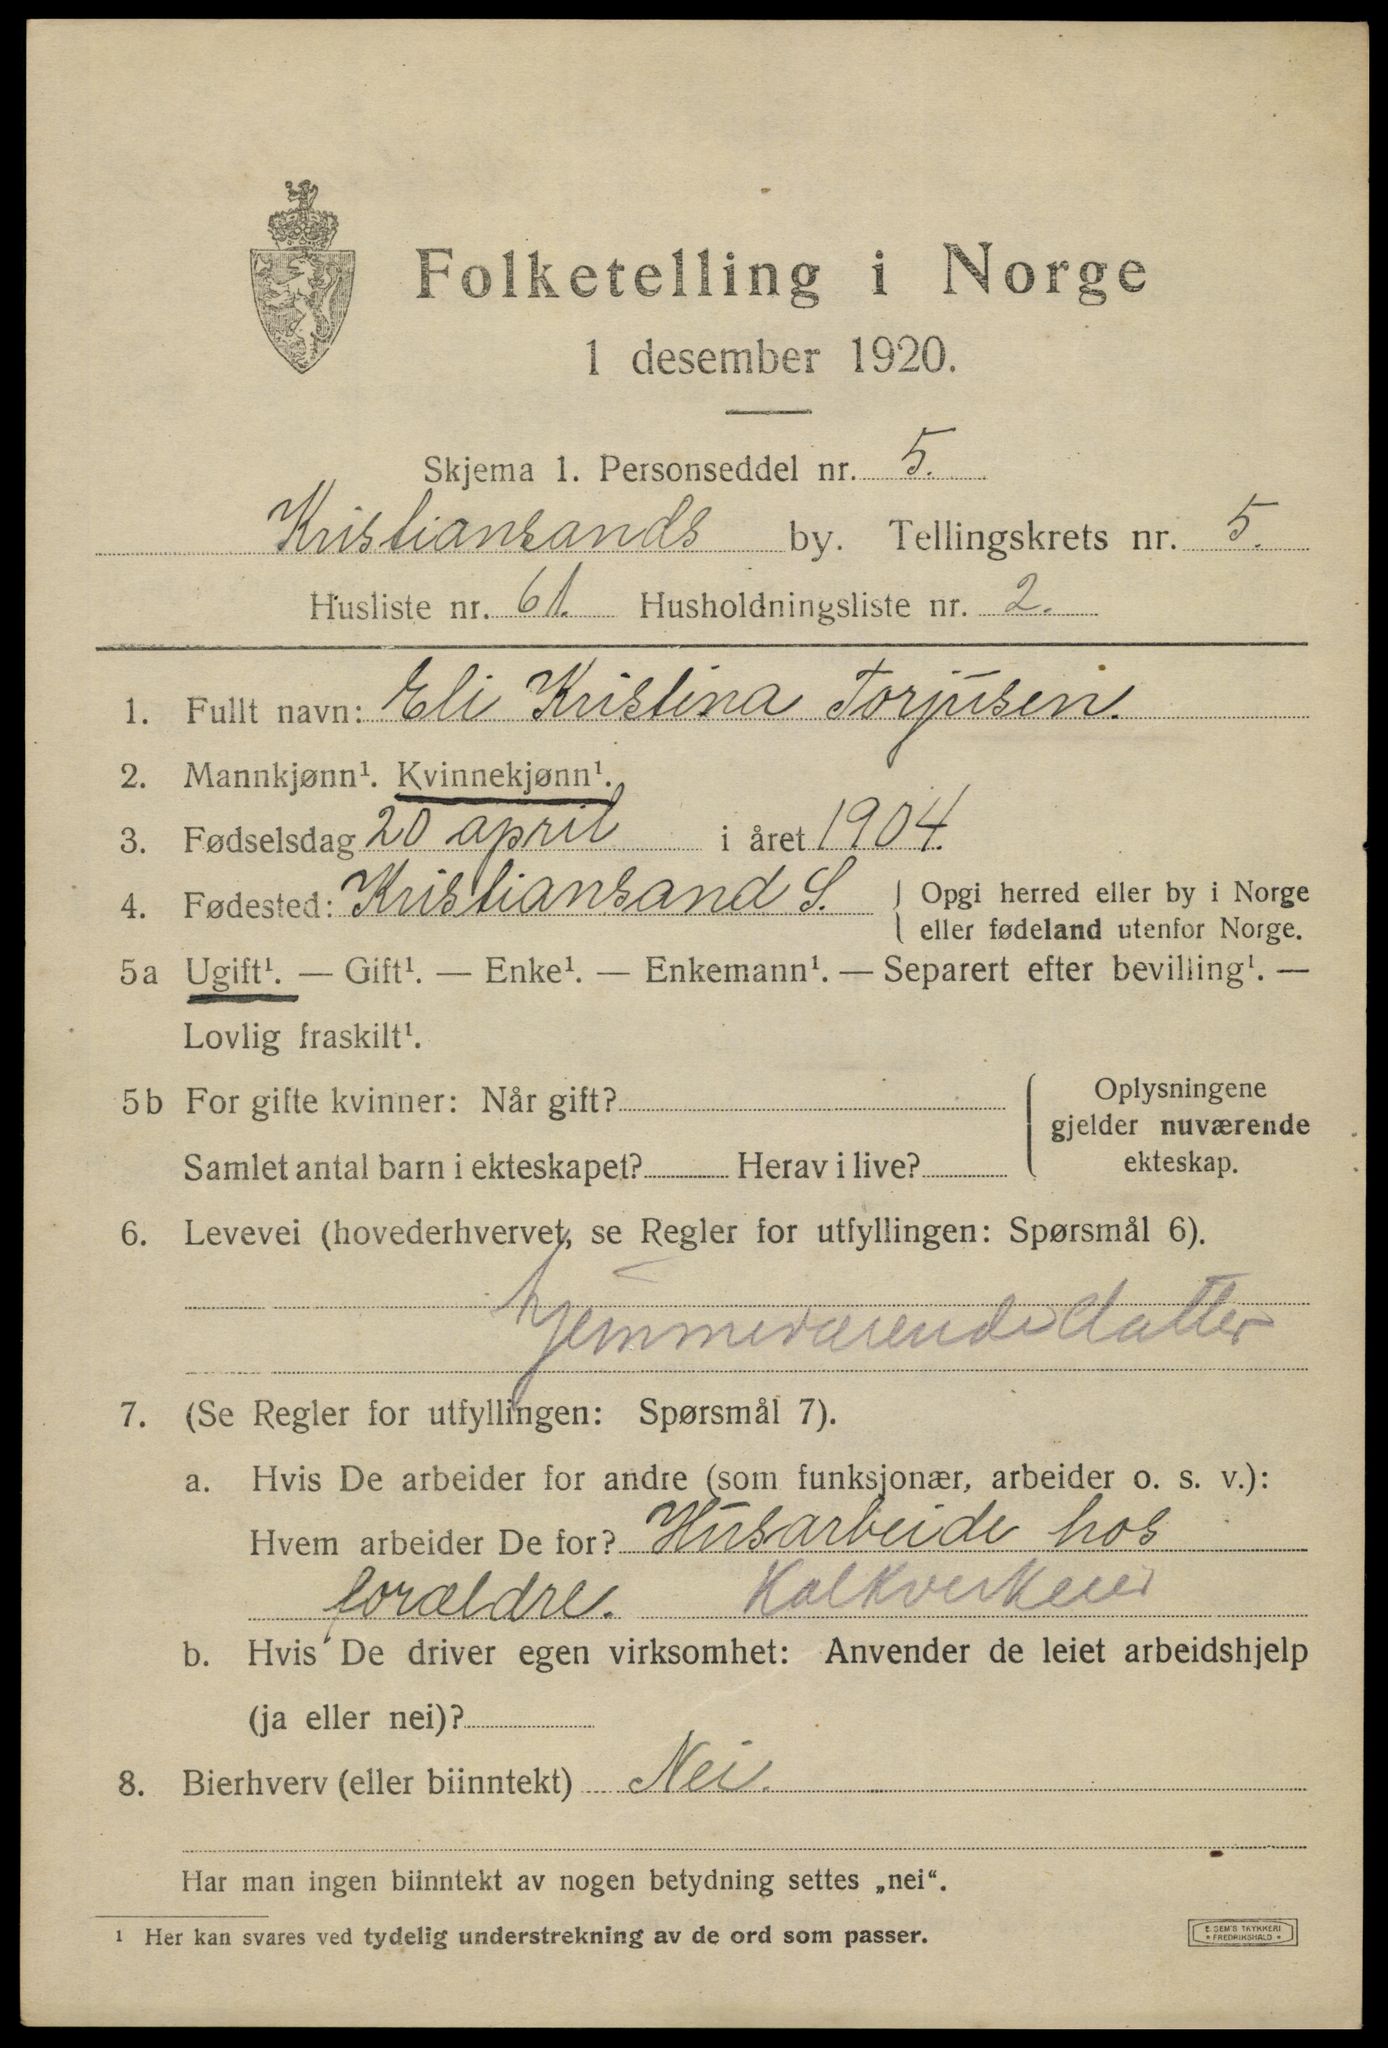 Folketelling i Norge
1 desember 1920.
Skjema 1. Personseddel nr. 5.
Kristiansands by. Tellingskrets nr. 5.
Husliste nr. 61. Husholdningsliste nr. 2.
1. Fullt navn: Eli Kristina Torjusen.
2. Mannkjønn¹. Kvinnekjønn¹.
3. Fødselsdag 20 april i året 1904.
4. Fødested: Kristiansand S. Opgi herred eller by i Norge
eller fødeland utenfor Norge.
5a Ugift¹. — Gift¹. — Enke¹. — Enkemann¹. — Separert efter bevilling¹. —
Lovlig fraskilt¹.
5b For gifte kvinner: Når gift? Oplysningene
gjelder nuværende
Samlet antal barn i ekteskapet? Herav i live? ekteskap.
6. Levevei (hovederhvervet, se Regler for utfyllingen: Spørsmål 6).
hjemmeværende datter
7. (Se Regler for utfyllingen: Spørsmål 7).
a. Hvis De arbeider for andre (som funksjonær, arbeider o. s. v.):
Hvem arbeider De for? Husarbeide hos
forældre. Kalkverkeier
b. Hvis De driver egen virksomhet: Anvender de leiet arbeidshjelp
(ja eller nei)?
8. Bierhverv (eller biinntekt) Nei.
Har man ingen biinntekt av nogen betydning settes „nei“.
¹ Her kan svares ved tydelig understrekning av de ord som passer.
E. SEM'S TRYKKERI
* FREDRIKSHALD *